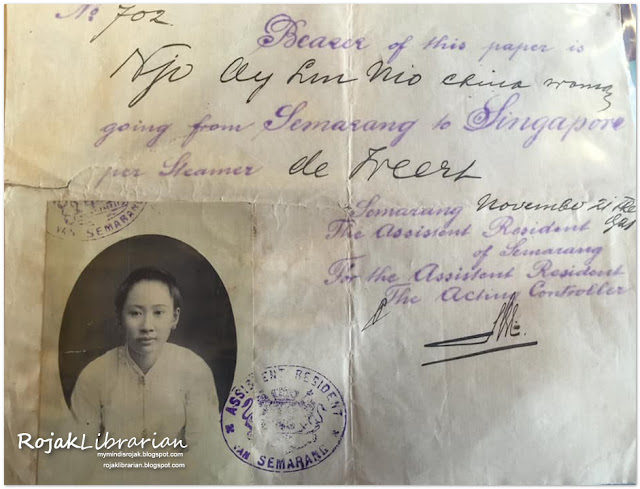 No 702
Bearer of this paper is
Njo Ay Lun Nio china woman
going from Semarang to Singapore
per Steamer de Weert
Semarang November 21
The Assistent Resident
of Semarang
For the Assistent Resident
The Acting Controller
VAN SEMARANG
ASSISTENT RESIDENT
VAN SEMARANG
RojakLibrarian
mymindisrojak.blogspot.com
rojaklibrarian.blogspot.com